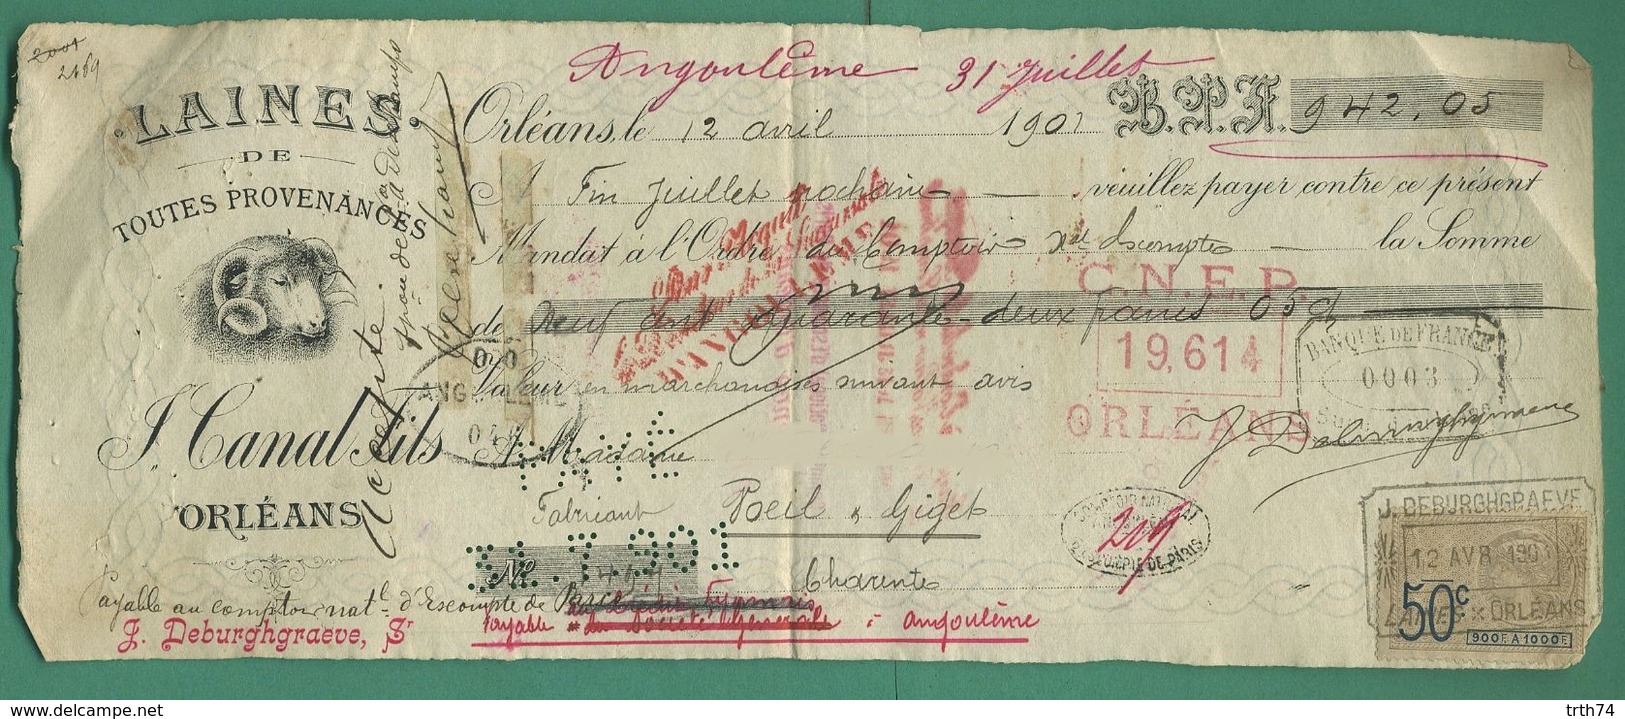 2001
2169
Angoulême 31 Juillet
LAINES
DE
TOUTES PROVENANCES
J. Canal Fils
ORLÉANS
Orléans, le 12 avril 1901 B.P.F. 942,05
A Fin Juillet prochain veuillez payer contre ce présent
Mandat à l'Ordre du Comptoir Nal d'Escompte la Somme
de Neuf cent quarante-deux francs 05 c/
Valeur en marchandises suivant avis
A Madame
Fabricant Poeil & Giget
Charente
No
Acceptée
C.N.E.P.
19,614
ORLÉANS
BANQUE DE FRANCE
0003
J Deburghgraeve
ANGOULÊME
PAYÉ
31.7.901
COMPTOIR NATIONAL
D'ESCOMPTE DE PARIS
209
J. DEBURGHGRAEVE
12 AVR 1901
LAINES X ORLÉANS
50c
900F. A 1000F.
Payable au comptoir natl. d'Escompte de Paris
J. Deburghgraeve, Sr
payable à la Société Générale à angoulême
www.delcampe.net
trth74